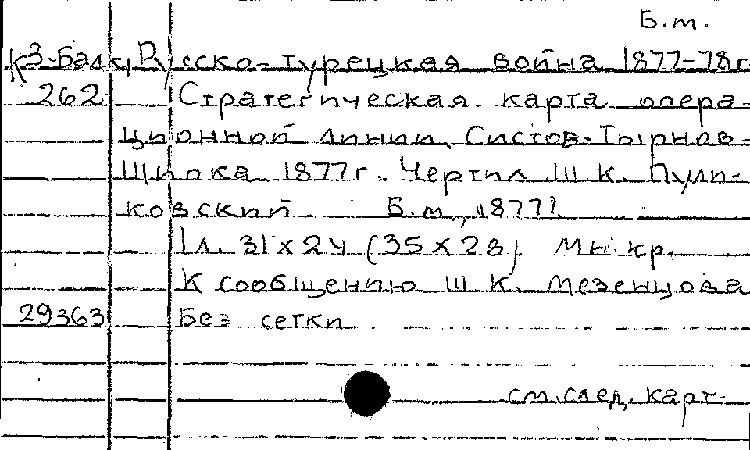 Б.м.
К3-Балк, Русско-турецкая война 1877-78г.
262 Стратегическая карта опера-
ционной линии Систов-Тырнов-
Шипка 1877г. Чертил Ш.К. Пули-
ковский Б.м., 1877]
1л. 31х24 (35х28) Мн.кр.
К сообщению Ш.К. Мезенцова
29363 Без сетки
см.след.карт.